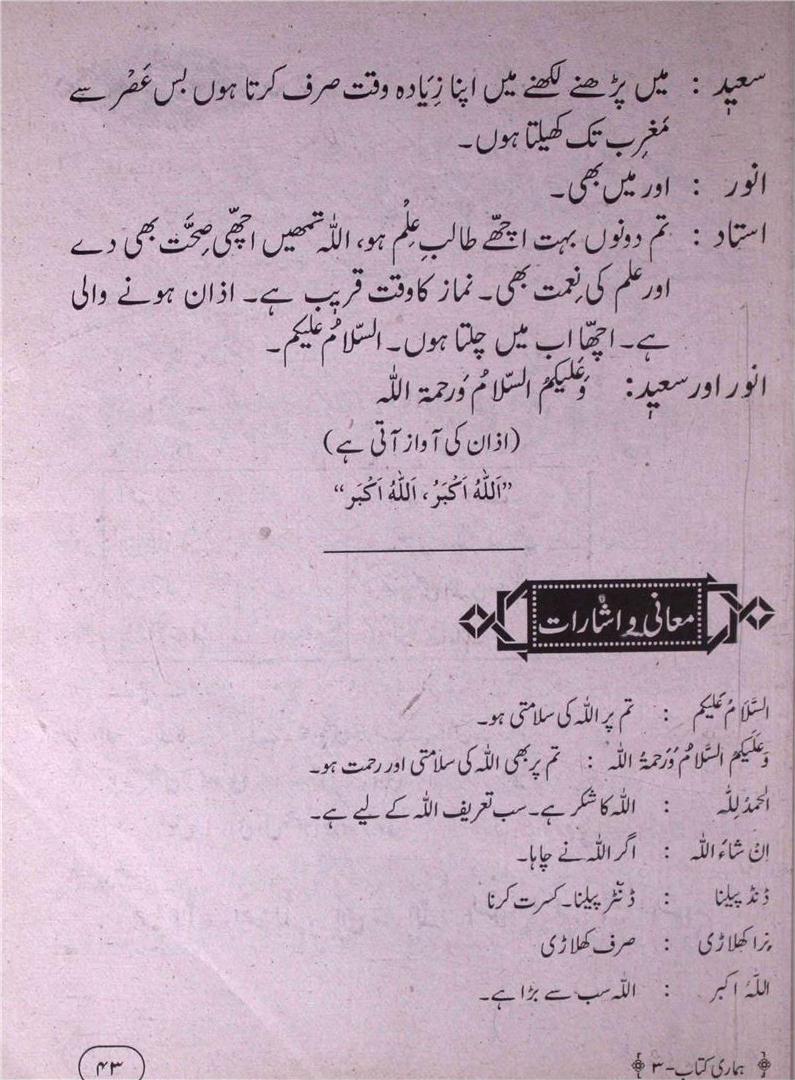 سعید : میں پڑھنے لکھنے میں اپنا زِیَادہ وقت صرف کرتا ہوں بس عَصْر سے
مَغرِب تک کھیلتا ہوں۔
انور : اور میں بھی۔
استاد : تم دونوں بہت اچھّے طالبِ عِلْم ہو، اللہ تمھیں اچھّی صِحَّت بھی دے
اور علم کی نِعمت بھی۔ نماز کا وقت قریب ہے۔ اذان ہونے والی
ہے۔ اچھّا اب میں چلتا ہوں۔ السّلامُ علیکم۔
انور اور سعید: وَعَلَیکمُ السّلامُ وَرحمۃ اللہ
(اذان کی آواز آتی ہے)
”اَللّٰہُ اَکْبَرُ، اَللّٰہُ اَکْبَر“
معانی و اشارات
السَّلَامُ عَلَیکم : تم پر اللہ کی سلامتی ہو۔
وَعَلَیکمُ السَّلامُ وَرَحمۃُ اللہ : تم پر بھی اللہ کی سلامتی اور رحمت ہو۔
الحمدُ لِلّٰہ : اللہ کا شکر ہے۔ سب تعریف اللہ کے لیے ہے۔
اِنْ شاءَ اللہ : اگر اللہ نے چاہا۔
ڈنڈ پیلنا : ڈنٹر پیلنا۔ کسرت کرنا
نِرا کھلاڑی : صرف کھلاڑی
اللہُ اکبر : اللہ سب سے بڑا ہے۔
ہماری کتاب-۳
۴۳